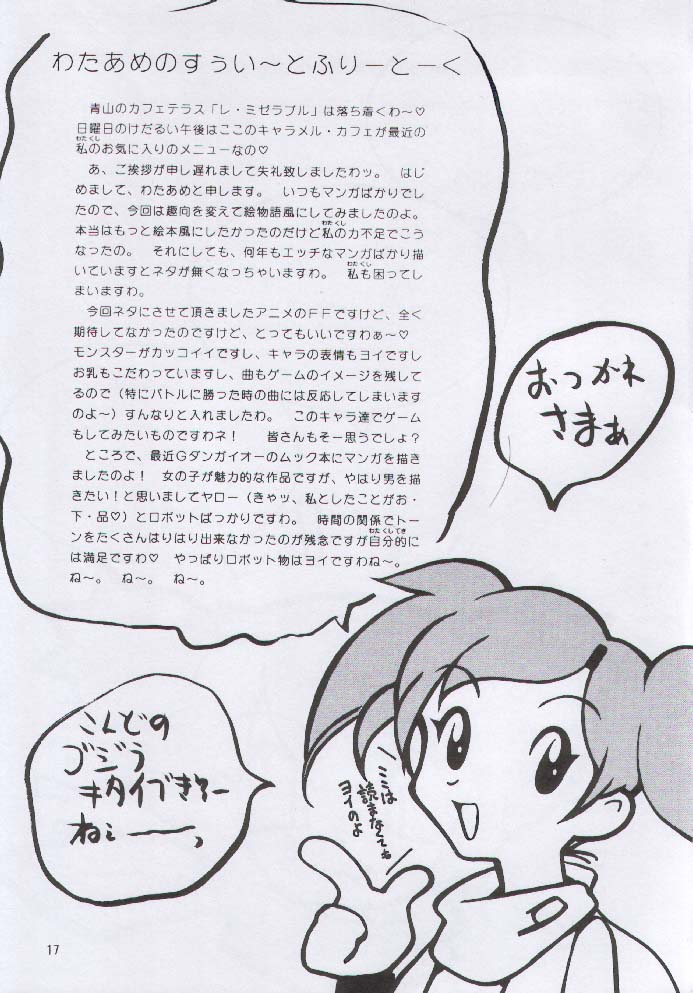 わたあめのすぅい〜とふりーとーく
青山のカフェテラス「レ・ミゼラブル」は落ち着くわ〜♡
日曜日のけだるい午後はここのキャラメル・カフェが最近の
わたくし
私のお気に入りのメニューなの♡
あ、ご挨拶が申し遅れまして失礼致しましたわッ。　はじ
めまして、わたあめと申します。　いつもマンガばかりでし
たので、今回は趣向を変えて絵物語風にしてみましたのよ。
わたくし
本当はもっと絵本風にしたかったのだけど私の力不足でこう
なったの。　それにしても、何年もエッチなマンガばかり描
わたくし
いていますとネタが無くなっちゃいますわ。　私も困ってし
まいますわ。
今回ネタにさせて頂きましたアニメのＦＦですけど、全く
期待してなかったのですけど、とってもいいですわぁ〜♡
モンスターがカッコイイですし、キャラの表情もヨイですし
お乳もこだわっていますし、曲もゲームのイメージを残して
るので（特にバトルに勝った時の曲には反応してしまいます
のよ〜）すんなりと入れましたわ。　このキャラ達でゲーム
もしてみたいものですわネ！　皆さんもそー思うでしょ？
ところで、最近Ｇダンガイオーのムック本にマンガを描き
ましたのよ！　女の子が魅力的な作品ですが、やはり男を描
きたい！と思いましてヤロー（きゃッ、私としたことがお・
下・品♡）とロボットばっかりですわ。　時間の関係でトー
わたくしてき
ンをたくさんはりはり出来なかったのが残念ですが自分的に
は満足ですわ♡　やっぱりロボット物はヨイですわね〜。
ね〜。　ね〜。　ね〜。
おつかれ
さまぁ
こんどの
ゴジラ
キタイブキ?ー
ねぇーーっ
ここは
読まなくても
ヨイのよ
17